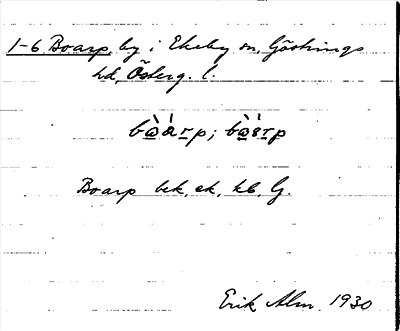 1-6 Boarp, by i Ekeby sn, Göstrings
hd, Österg. l.
Boarp bek, ek, kb, G.
Erik Alm. 1930